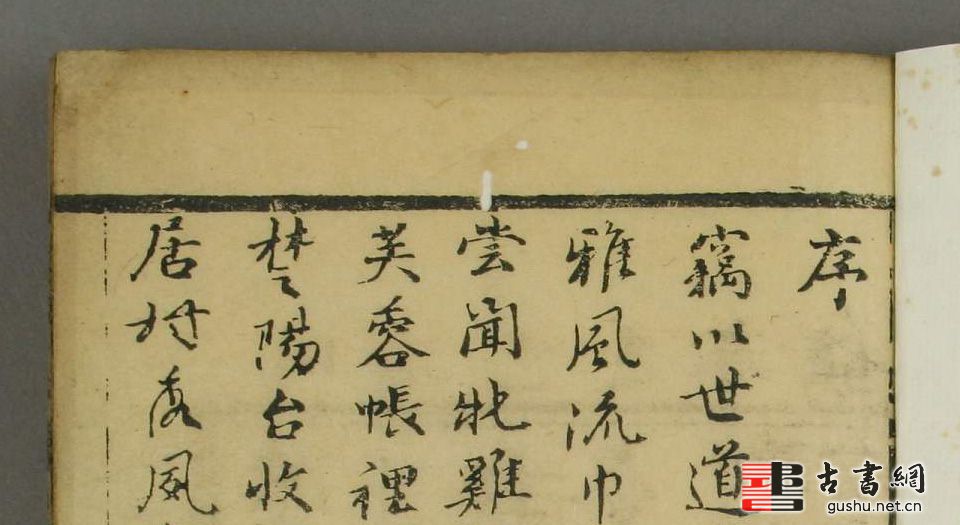 序
竊以世道
雅風流巾
尝聞牝雞
芙蓉帳裡
楚陽台收
居於風
古書網
gushu.net.cn